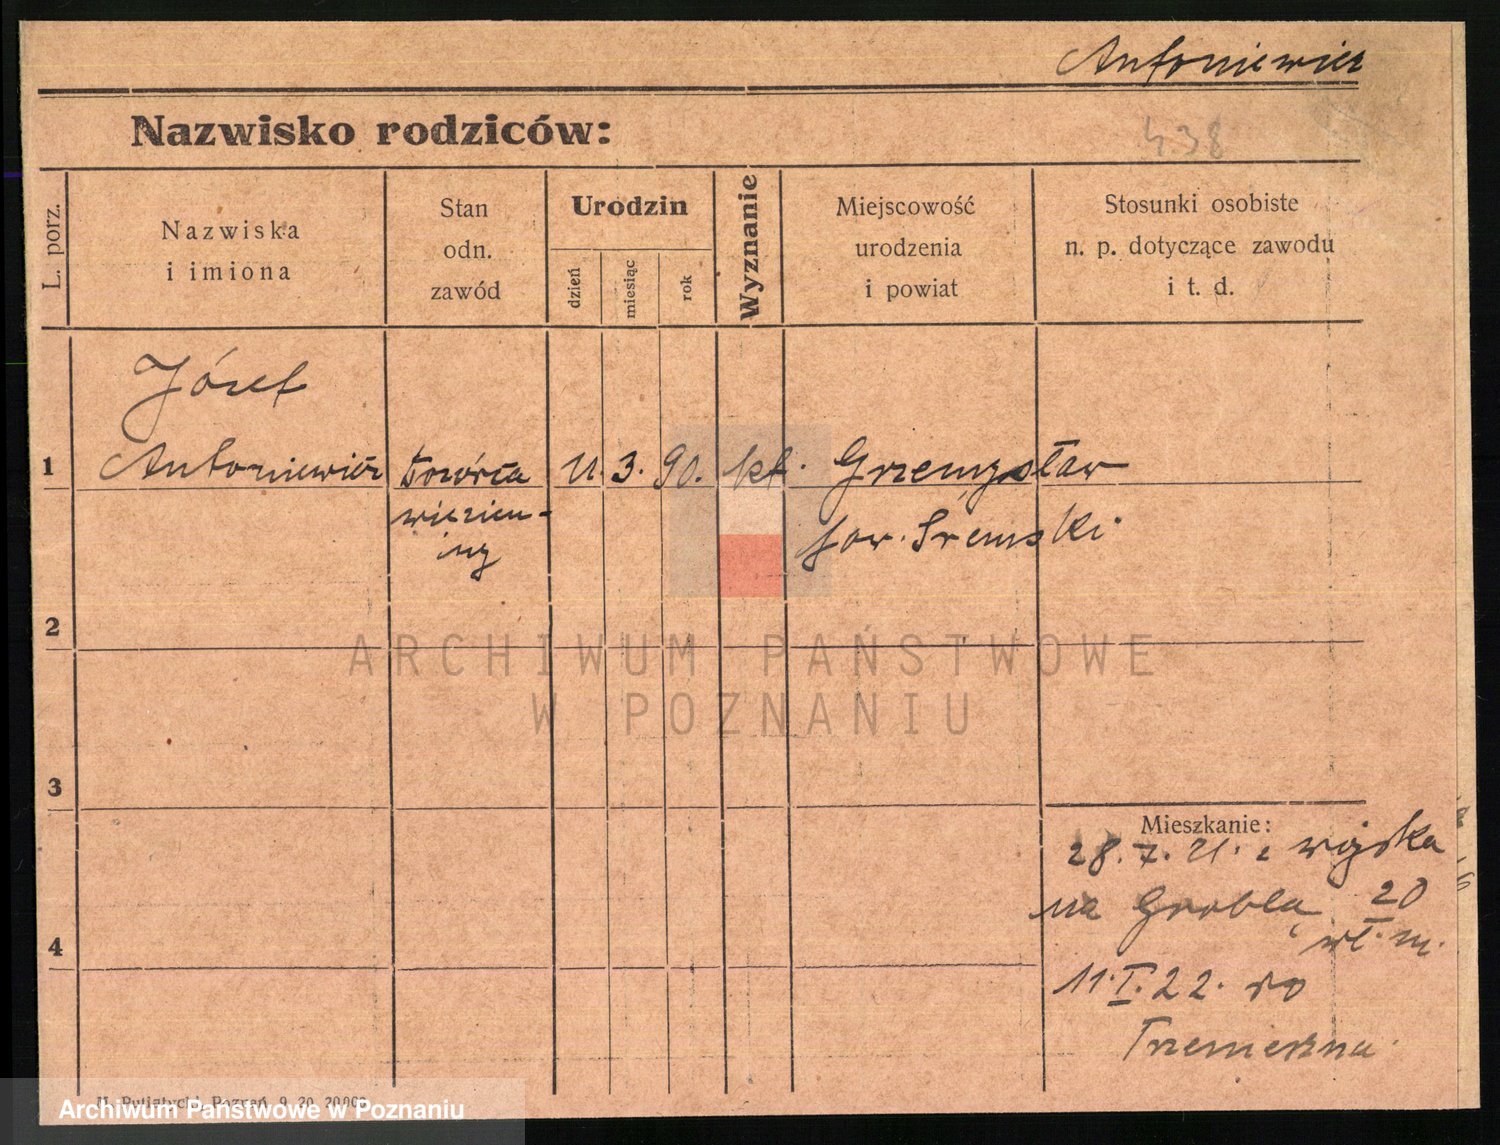 Antoniewicz
Nazwisko rodziców:
438
L. porz.
Nazwiska
i imiona
Stan
odn.
zawód
Urodzin
dzień
miesiąc
rok
Wyznanie
Miejscowość
urodzenia
i powiat
Stosunki osobiste
n. p. dotyczące zawodu
i t. d.
Józef
1 Antoniewicz dozórca 11. 3. 90. kat. Grzemysław
więzien-
ny
pow. Śremski
2
ARCHIWUM PAŃSTWOWE
W POZNANIU
3
Mieszkanie:
28. 7. 21. z wojska
na Groblą 20
wł. m.
4
11. I. 22. do
Trzemeszna
Poznań 9. 20. 20000
Archiwum Państwowe w Poznaniu